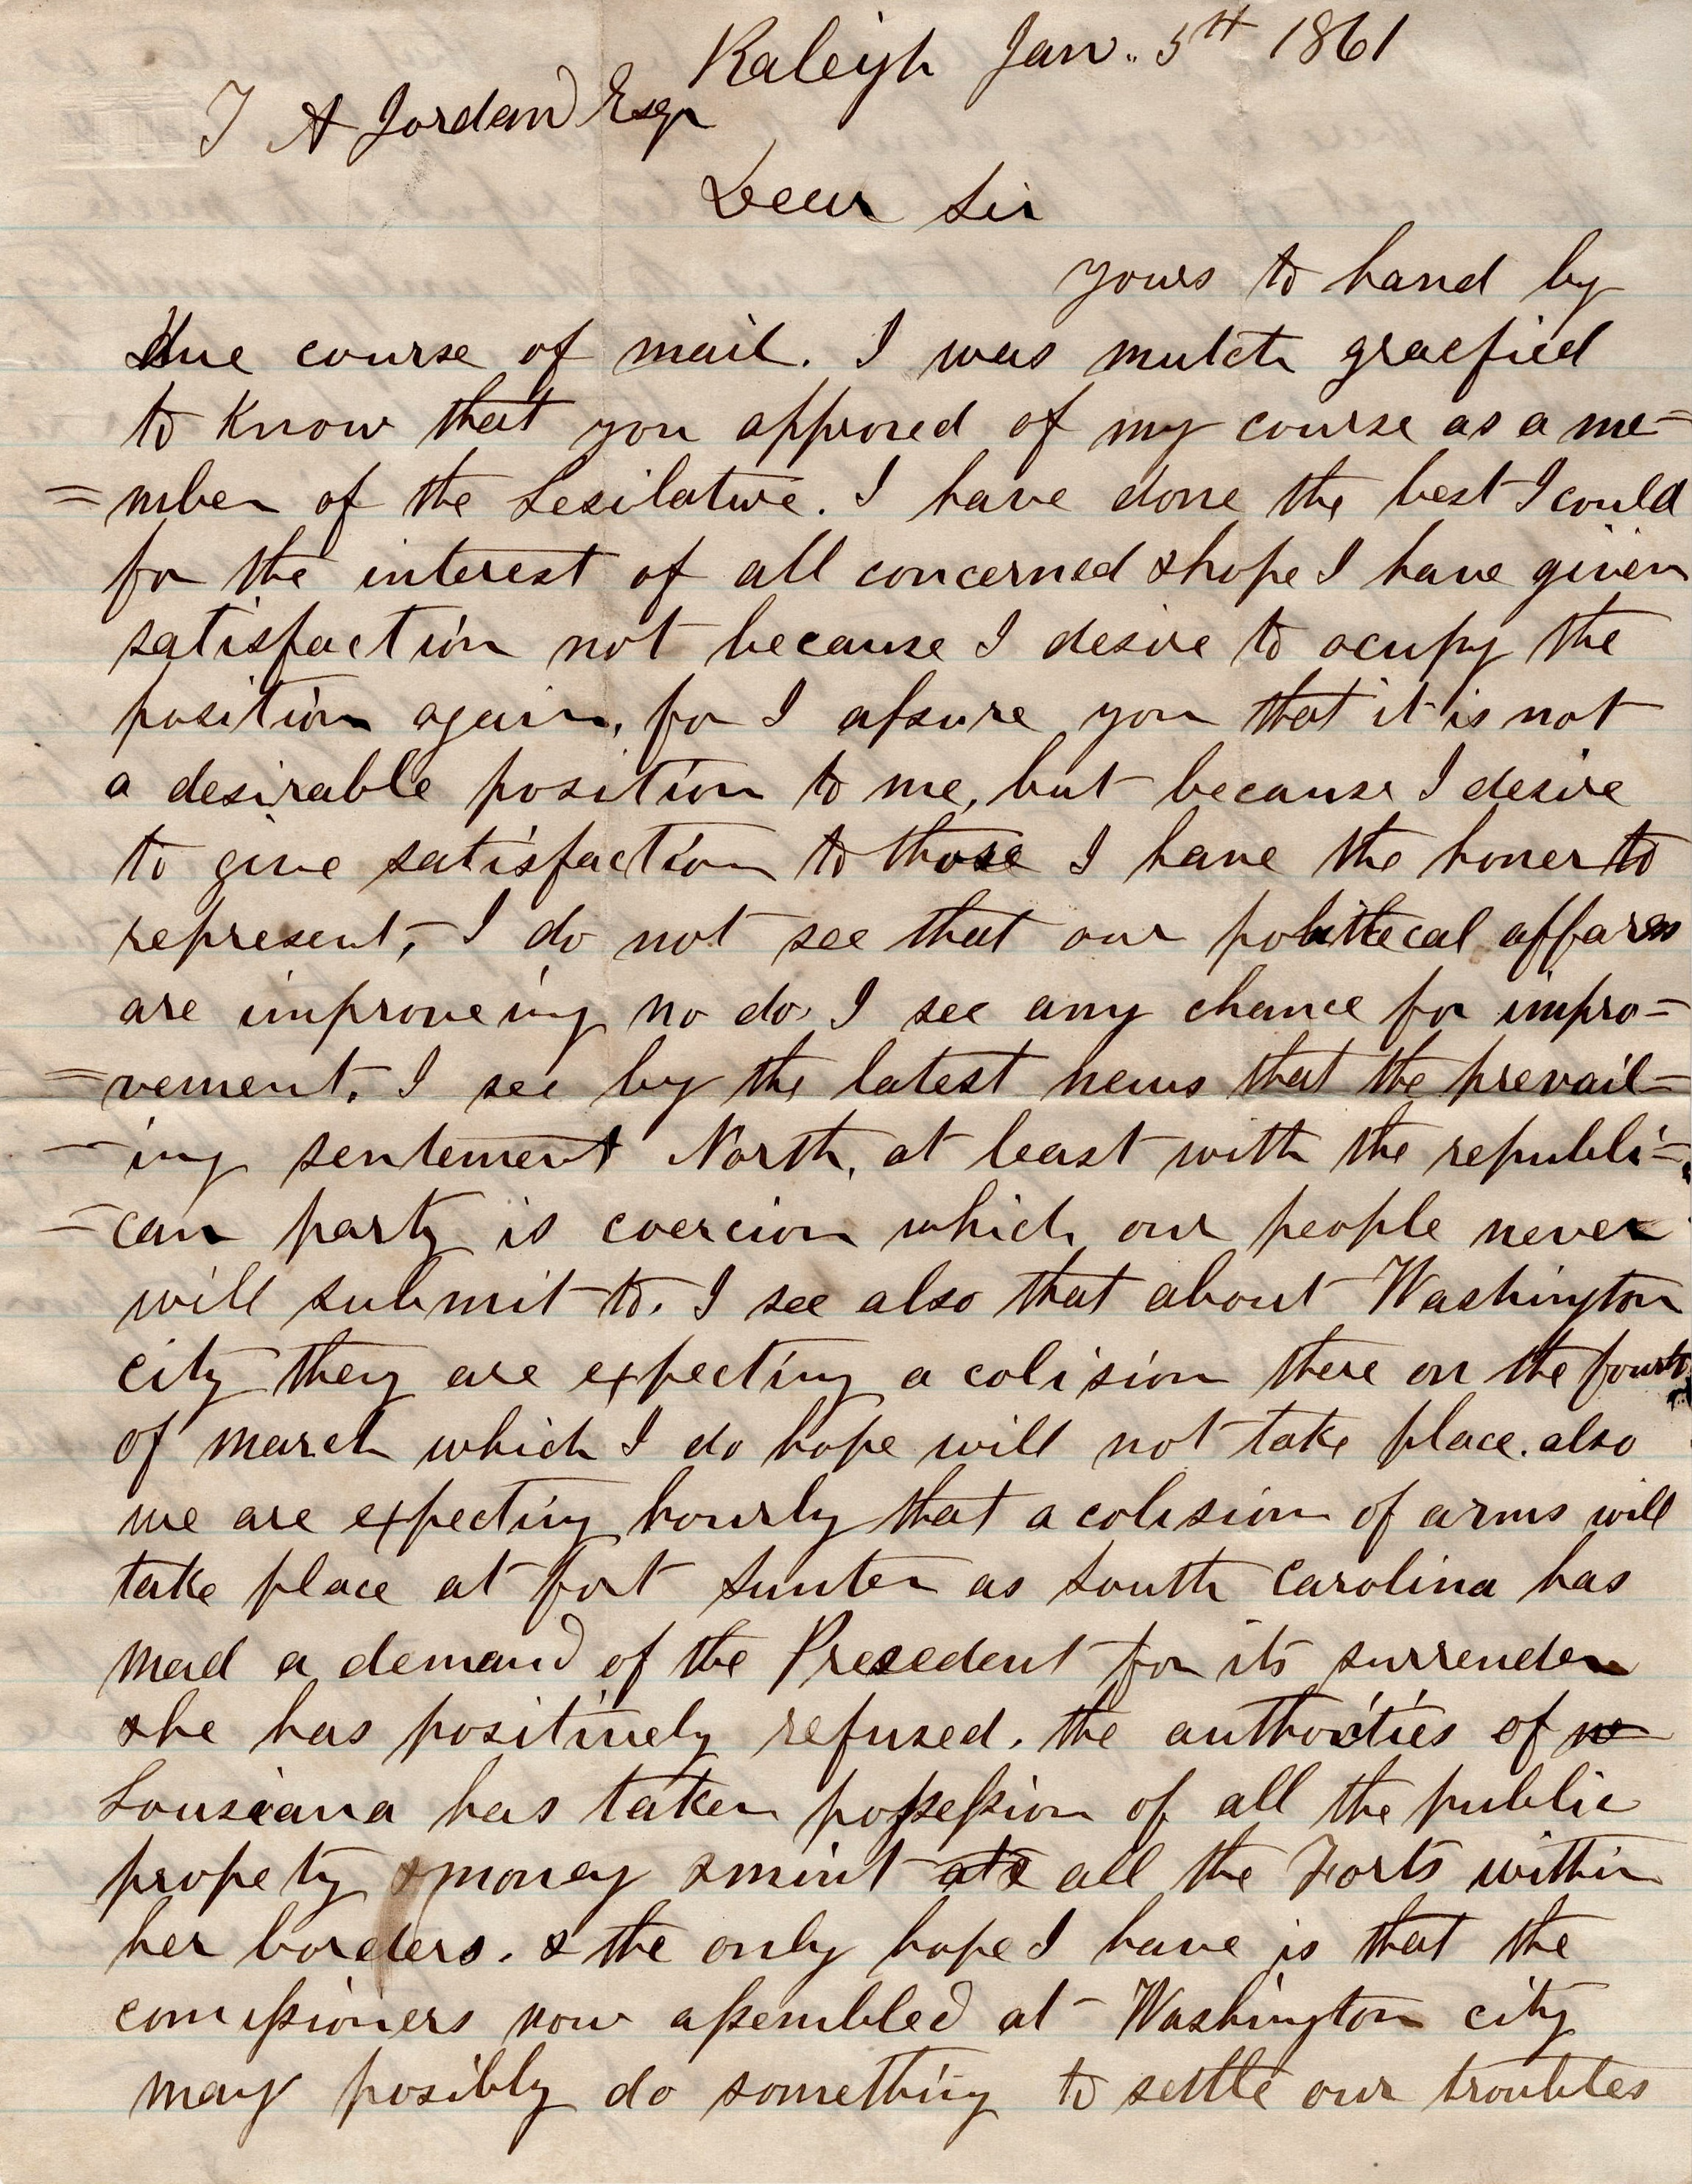 Raleigh Jan. 5th 1861
T A Jordan Esqr
Dear Sir
yours to hand by
due course of mail. I was mutch graefied
to Know that you approved of my course as a me=
=mber of the Lesilative. I have done the best I could
for the interest of all concerned & hope I have given
satisfaction not because I desire to ocupy the
position again, for I assure you that it is not
a desirable position to me, but because I desire
to give satisfaction to those I have the honer to
represent, I do not see that our politecal affares
are improveing no do I see any chance for impro=
=vement. I see by the latest news that the prevail=
=ing sentement North, at least with the republi=
=can party is coercion which our people never
will submit to. I see also that about Washington
city they are expecting a colision there on the fourth
of march which I do hope will not take place. also
we are expecting hourly that a colision of arms will
take place at fort Sumter as South Carolina has
mad a demand of the Presedent for its surrender
& he has positively refused. the authorities of
Lousiana has taken possession of all the public
propety & money & mint all the Forts within
her borders. & the only hope I have is that the
comissioners now assembled at Washington city
may posibly do something to settle our troubles